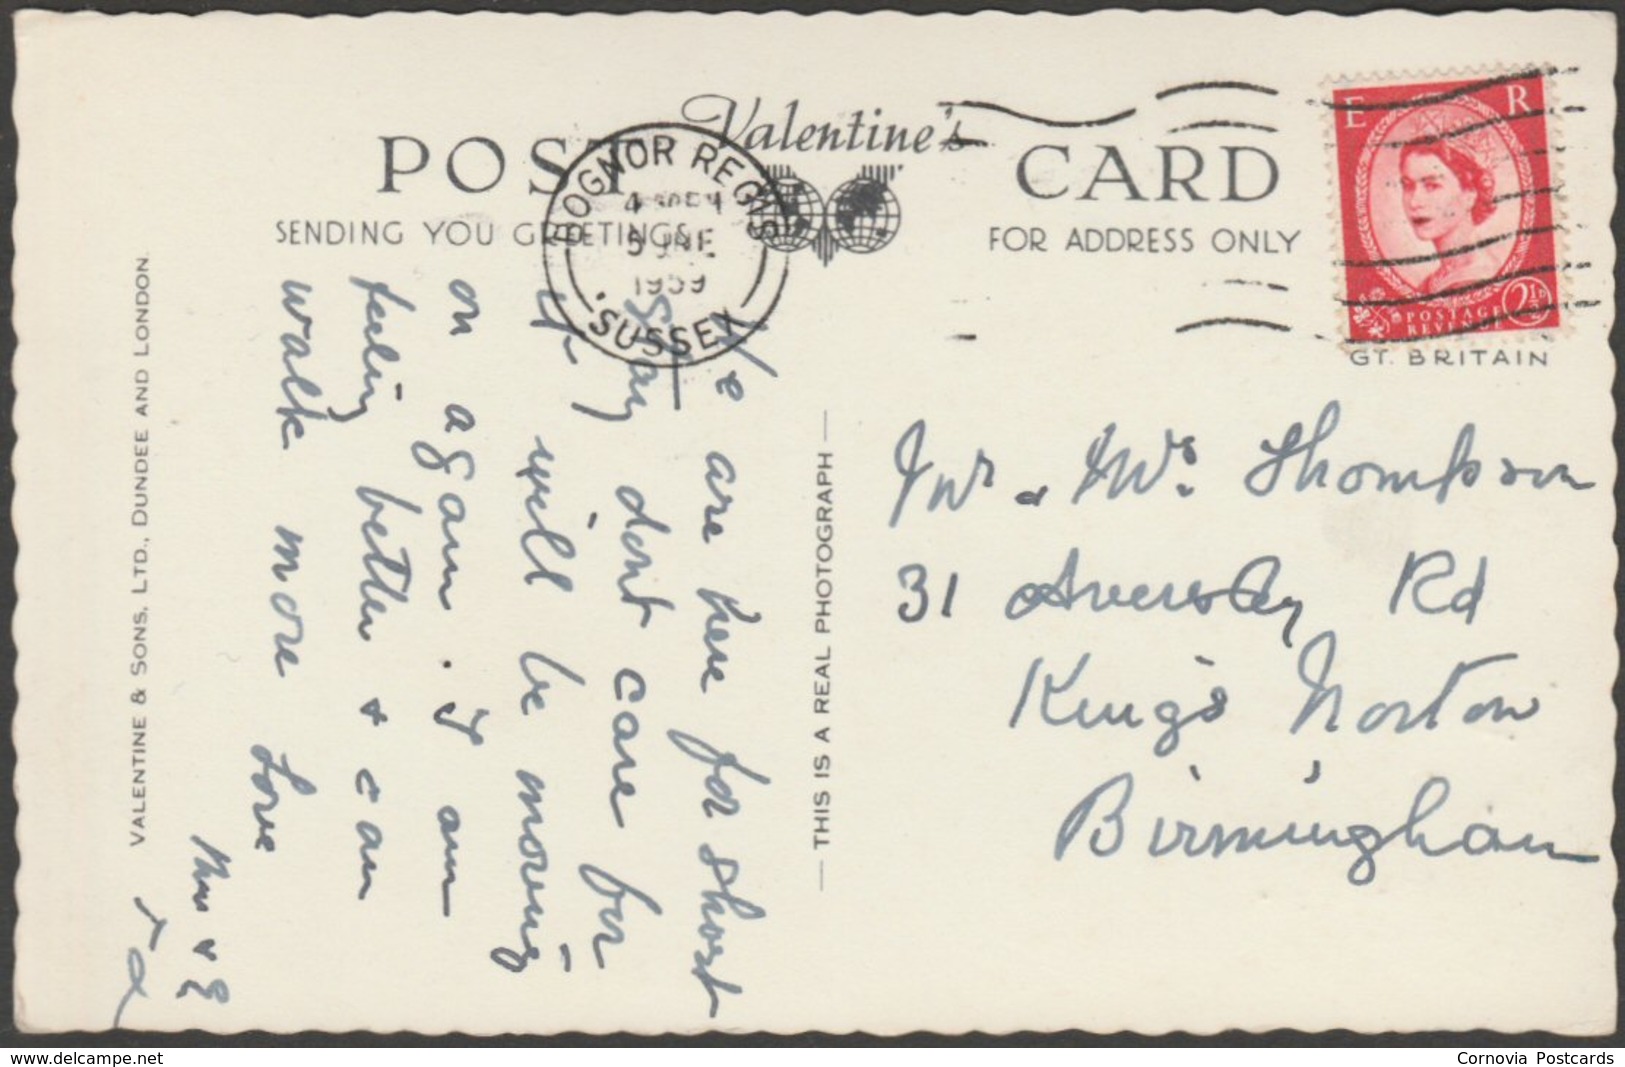 POST CARD
Valentine's
SENDING YOU GREETINGS
FOR ADDRESS ONLY
BOGNOR REGIS
5 JNE
1959
SUSSEX
E R
POSTAGE
REVENUE
2½D
GT. BRITAIN
VALENTINE & SONS, LTD., DUNDEE AND LONDON.
THIS IS A REAL PHOTOGRAPH
We are here for short
stay dont care for
it will be moving
on again. I am
feeling better & can
walk more Love
Mr & Mrs Thompson
31 Rd
King's Norton
Birmingham
www.delcampe.net
Cornovia Postcards